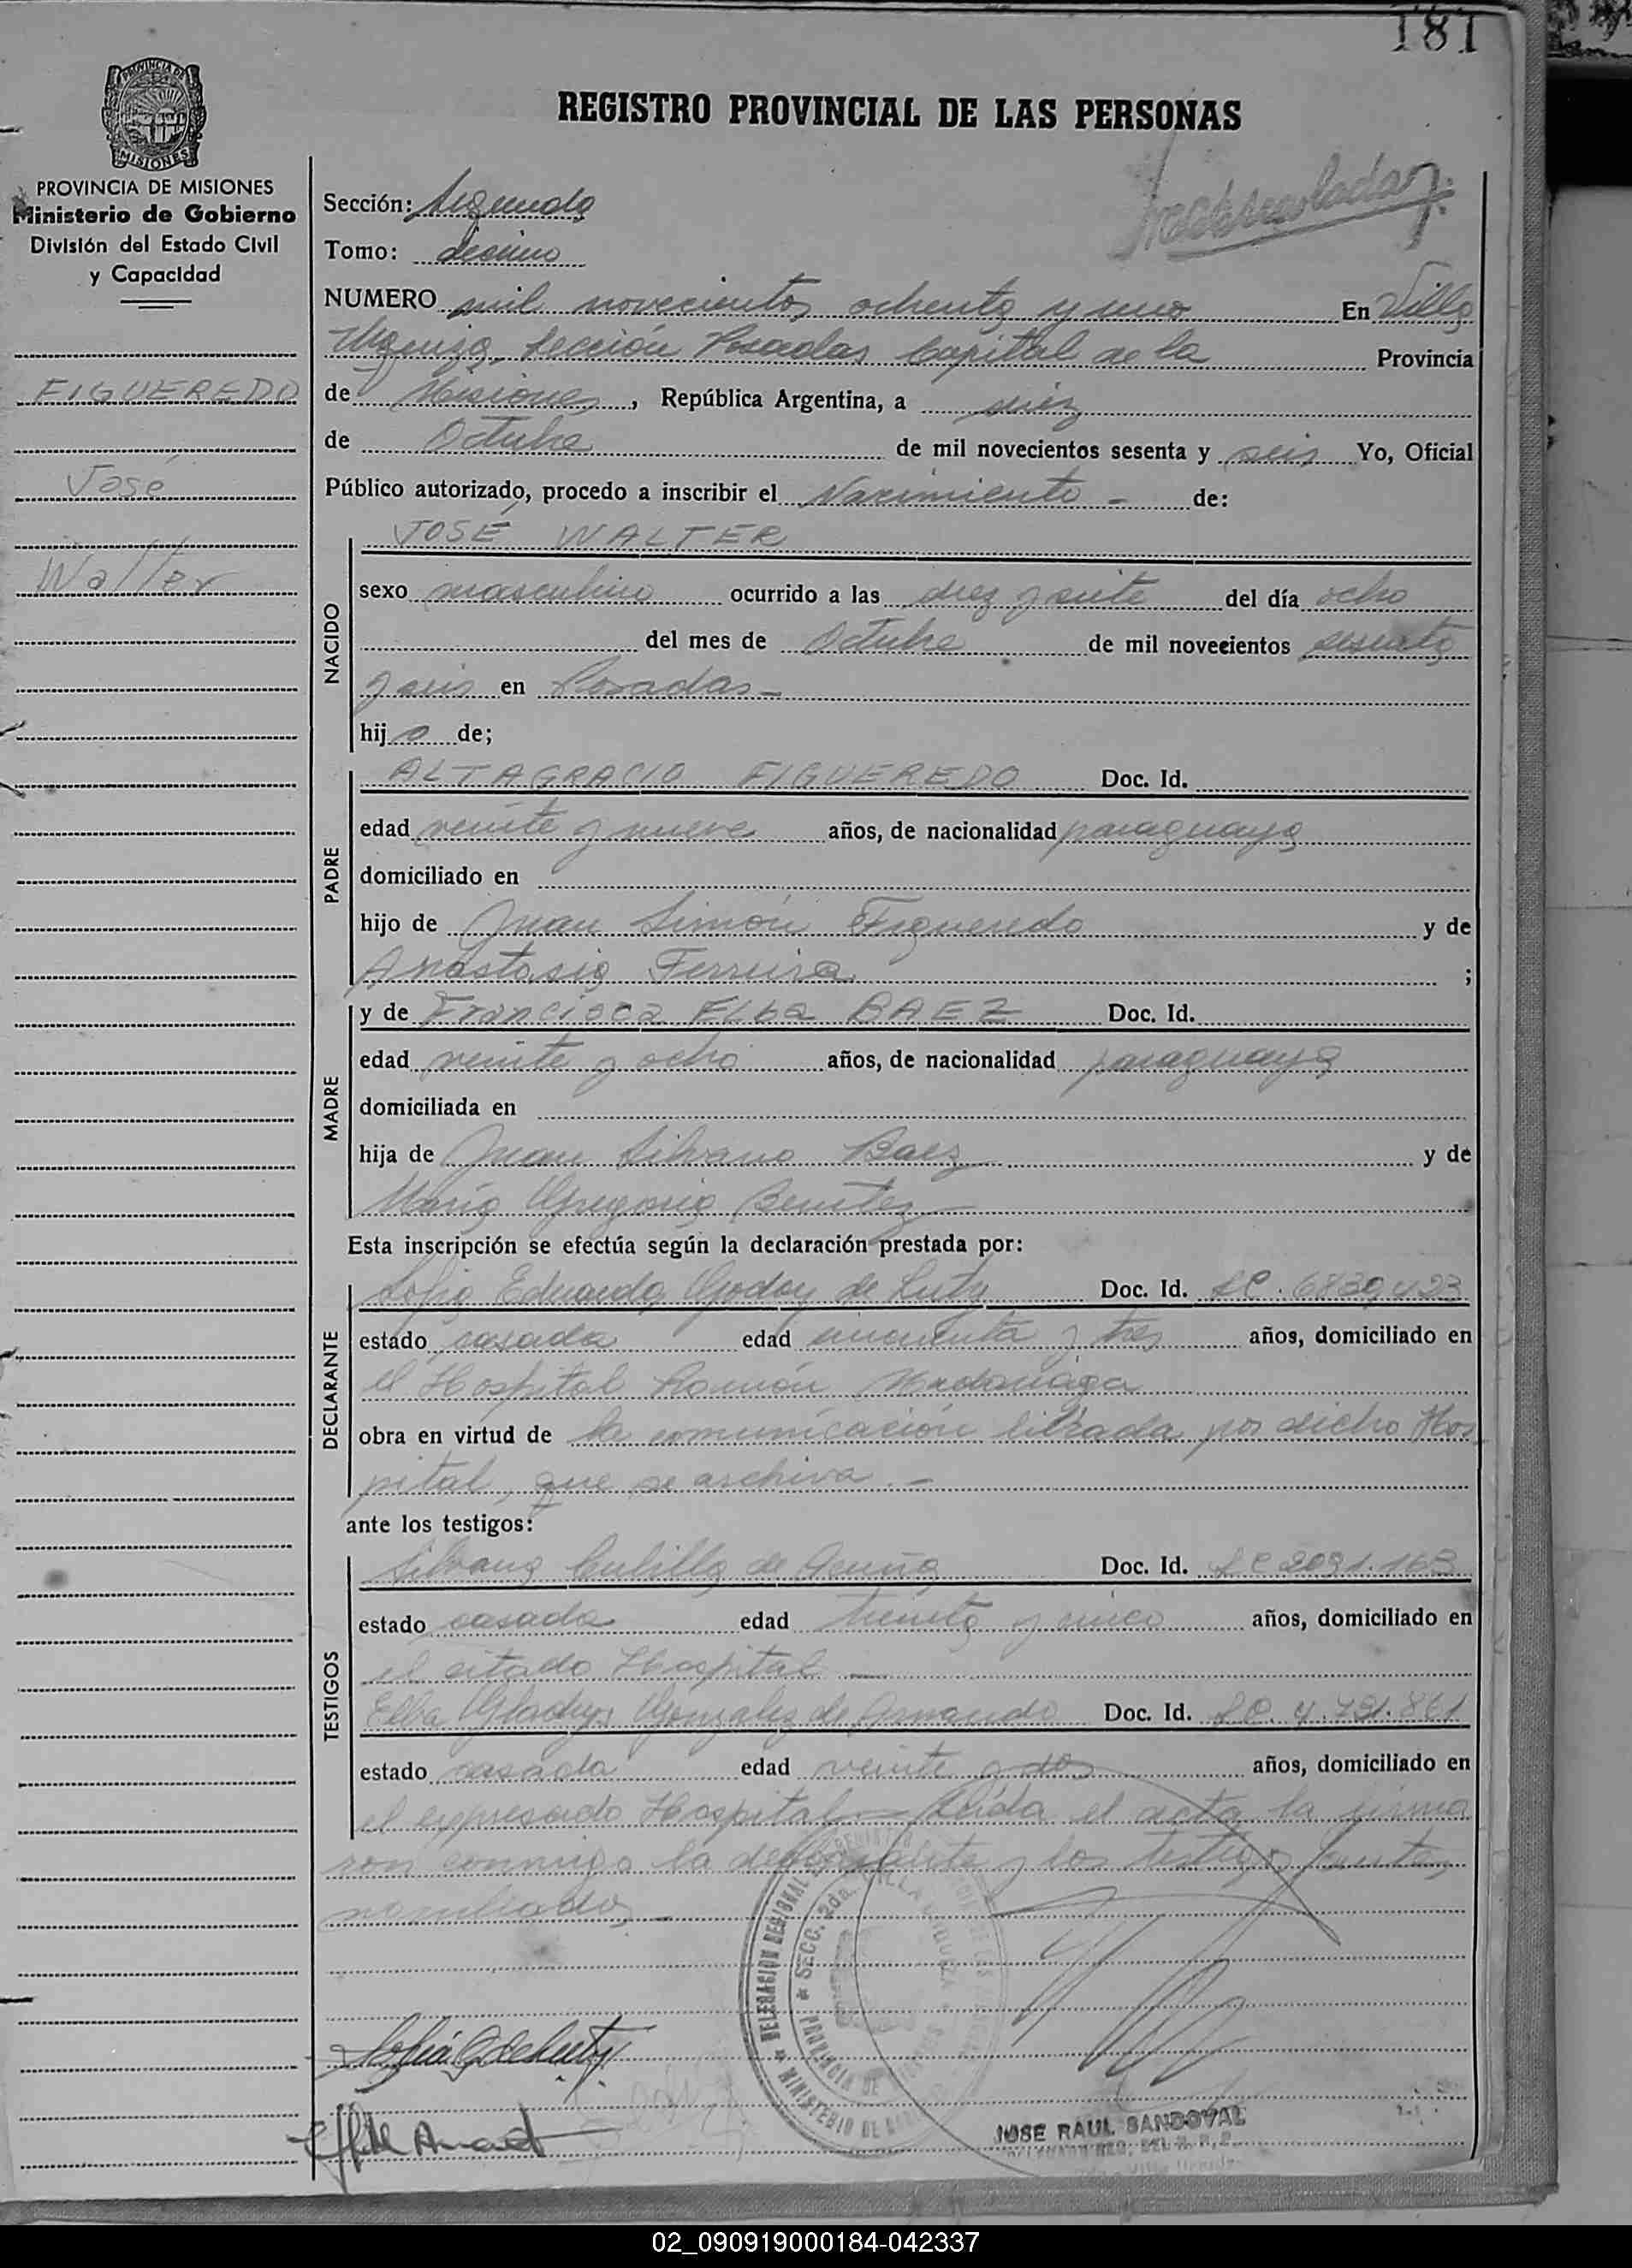 181
REGISTRO PROVINCIAL DE LAS PERSONAS
PROVINCIA DE
MISIONES
PROVINCIA DE MISIONES
Ministerio de Gobierno
División del Estado Civil
y Capacidad
FIGUEREDO
José
Walter
Sección: Segunda
Tomo: decimo
NUMERO mil novecientos ochenta y uno En Villa
Urquiza, Sección Posadas Capital de la Provincia
de Misiones, República Argentina, a diez
de Octubre de mil novecientos sesenta y seis Yo, Oficial
Público autorizado, procedo a inscribir el Nacimiento - de:
JOSÉ WALTER
NACIDO
sexo masculino ocurrido a las diez y siete del día ocho
del mes de Octubre de mil novecientos sesenta
y seis en Posadas -
hijo de;
PADRE
ALTAGRACIO FIGUEREDO Doc. Id.
edad veinte y nueve años, de nacionalidad paraguaya
domiciliado en
hijo de Juan Simón Figueredo y de
Anastasia Ferreira ;
MADRE
y de Francisca Elba BAEZ Doc. Id.
edad veinte y ocho años, de nacionalidad paraguaya
domiciliada en
hija de Juan Silvano Baez y de
María Gregoria Benitez
Esta inscripción se efectúa según la declaración prestada por:
DECLARANTE
Sofia Eduarda Godoy de Doc. Id. LC. 6839423
estado casada edad cincuenta y tres años, domiciliado en
el Hospital Ramón Madariaga
obra en virtud de la comunicación librada por dicho Hos-
pital, que se archiva. -
ante los testigos:
TESTIGOS
Silvana Cubilla de Acuña Doc. Id. LC 2091.163
estado casada edad treinta y cinco años, domiciliado en
el citado Hospital -
Elba Gladys Gonzalez de Doc. Id. LC. 4.791.861
estado casada edad veinte y dos años, domiciliado en
el expresado Hospital - Leída el acta la firma
ron conmigo la declarante y los testigos
DELEGACION REGIONAL
SECC. 2da. VILLA URQUIZA
PROVINCIA DE MISIONES
MINISTERIO DE
JOSE RAUL SANDOVAL
02_090919000184-042337